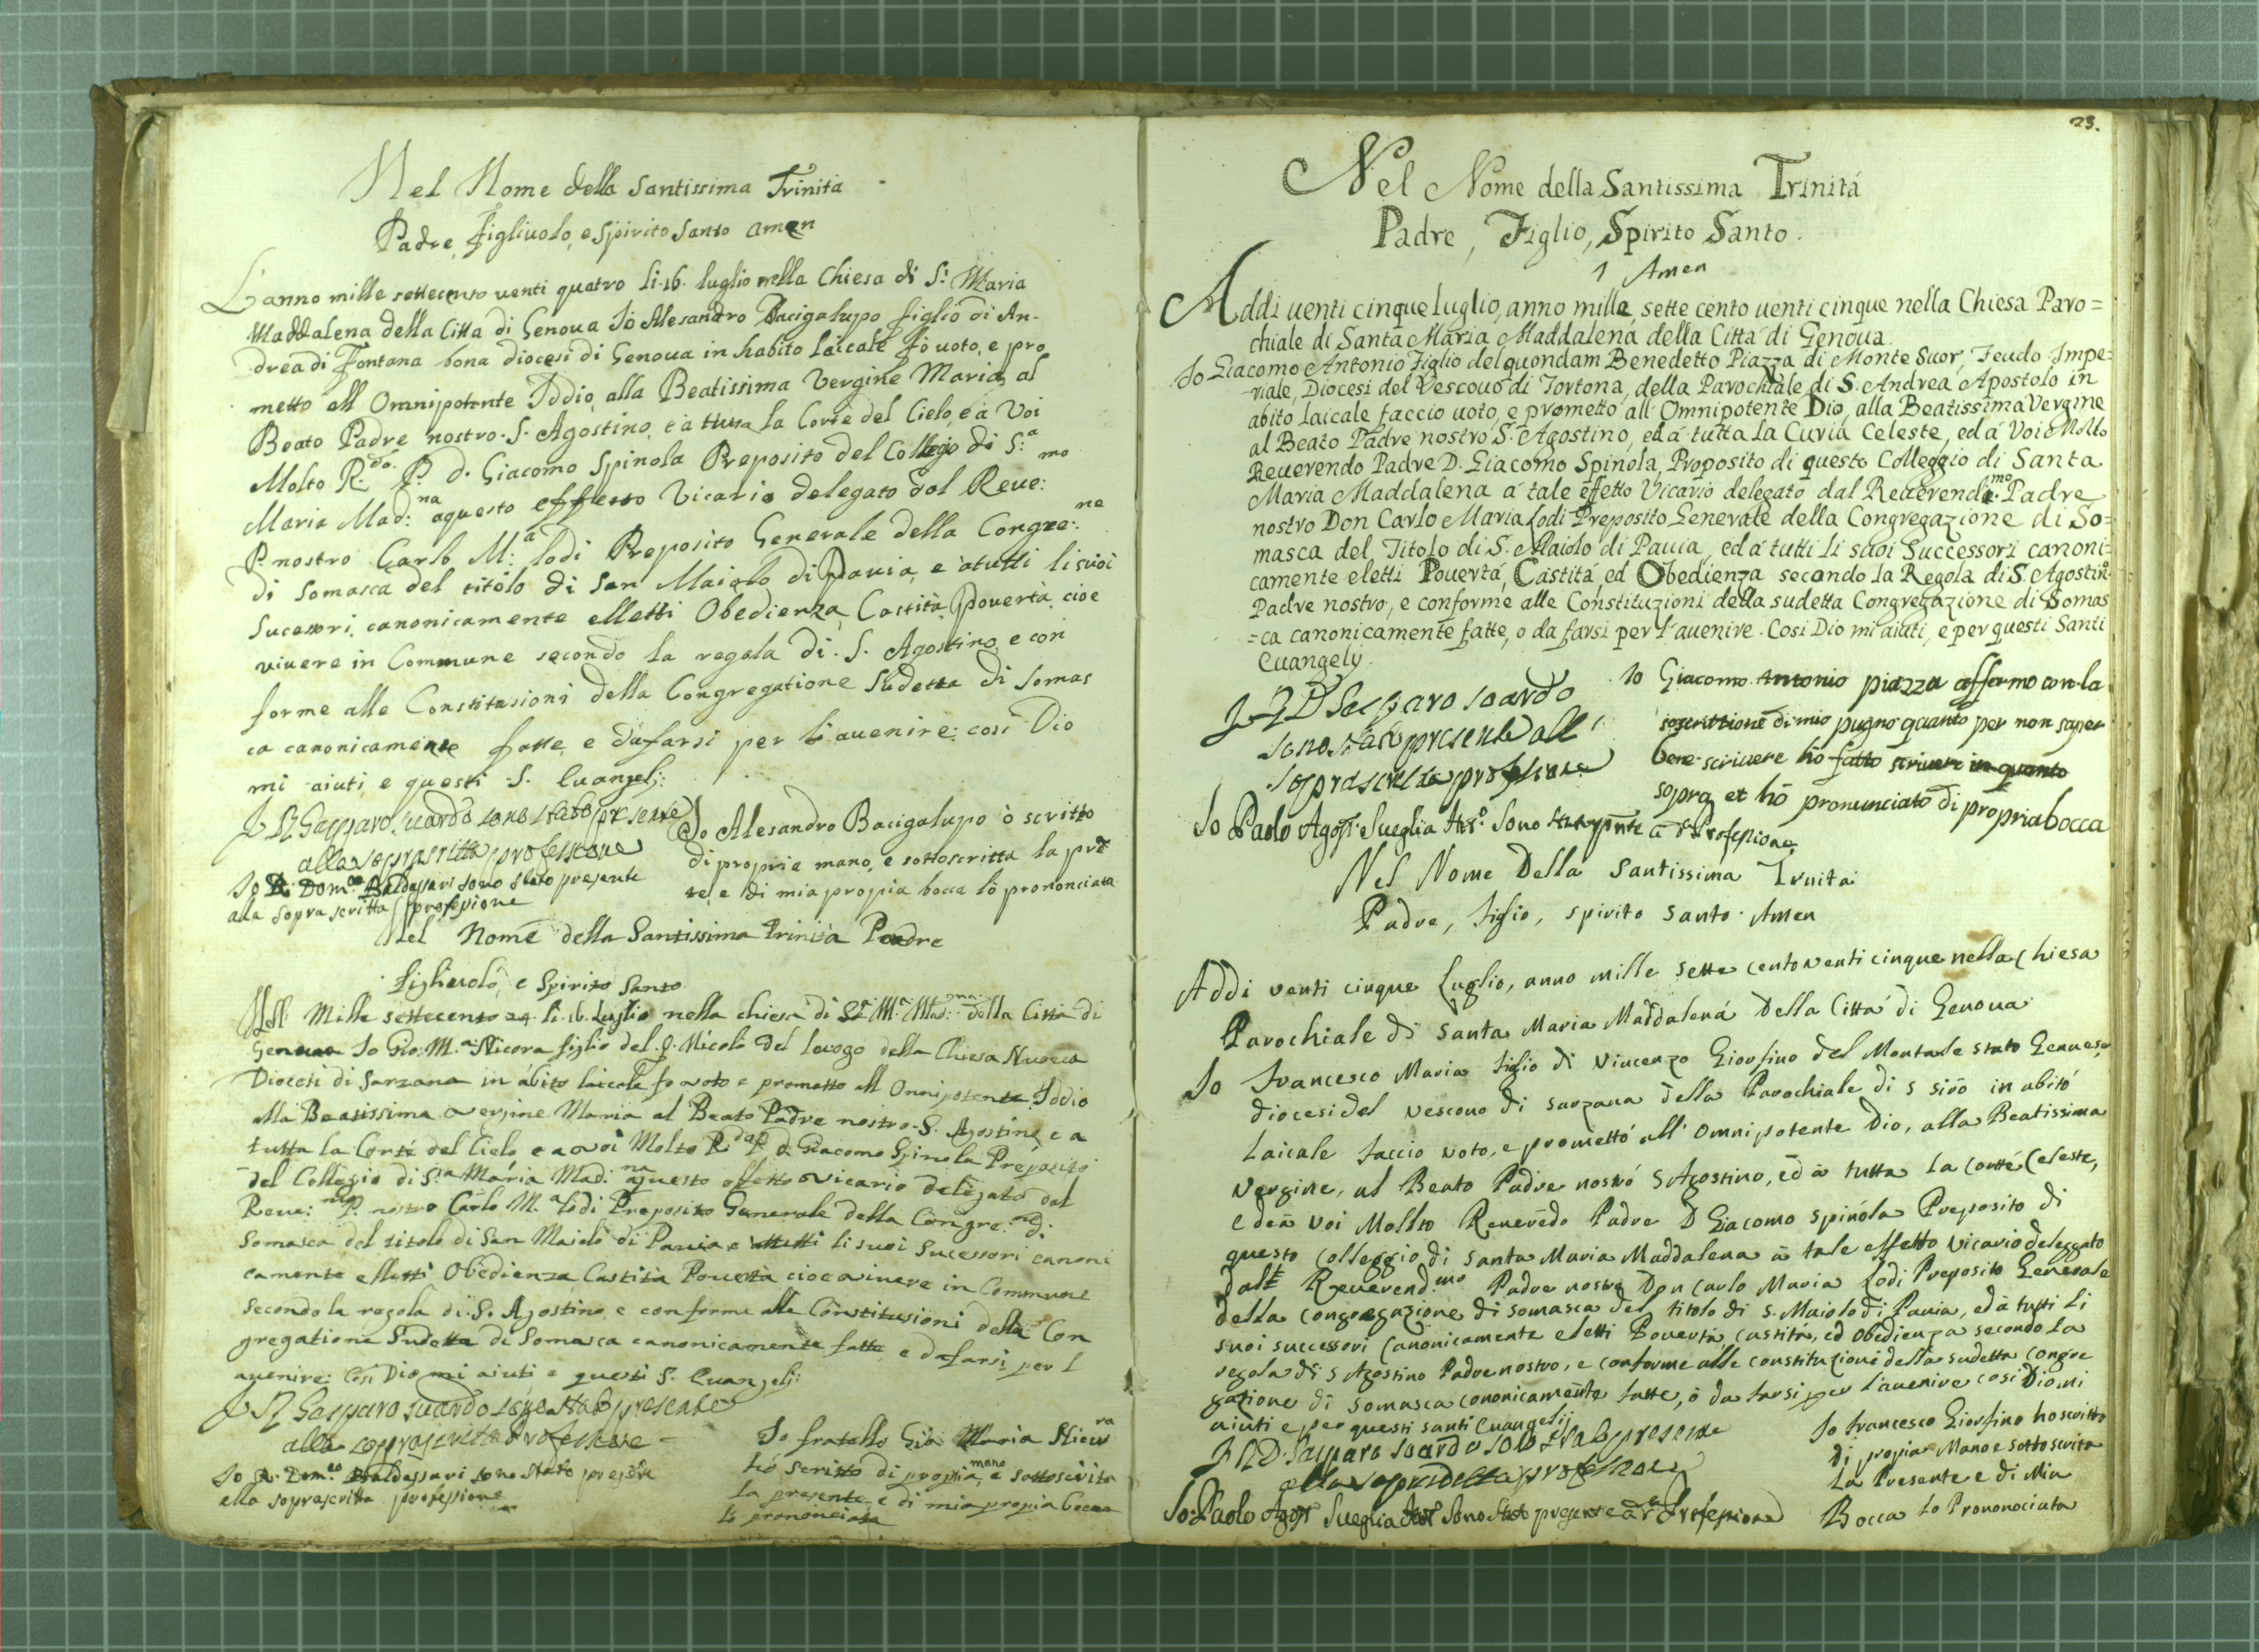 Nel Nome della Santissima Trinità
Padre, figliuolo, e Spirito Santo amen
L'anno mille settecento venti quatro li .16. luglio nella Chiesa di S.ª Maria
Maddalena della Città di Genova Io Alesandro Bacigalupo figlio di An-
drea di Fontana bona diocesi di Genova in habito laicale fò voto, e pro
metto all Omnipotente Iddio, alla Beatissima Vergine Maria, al
Beato Padre nostro S. Agostino, e à tutta la Corte del Cielo, e à Voi
Molto R.do P. d. Giacomo Spinola Preposito del Collegio di S.ª
Maria Mad:na aquesto effetto Vicario delegato dal Reve:mo
P. nostro Carlo M:ª Lodi Preposito Generale della Congre:ne
di Somasca del titolo di San Maiolo di Pavia, e à tutti li suoi
Sucessori canonicamente elletti Obedienza, Castità, povertà, cioe
vivere in Commune secondo la regola di S. Agostino, e con
forme alle Constitusioni della Congregatione Sudetta di Somas
ca canonicamente fatte, e dafarsi per l'avenire: così Dio
mi aiuti, e questi S. Evangelj:
Gasparo Suardo sono stato presente
alla soprascritta professione
Io D. Dom.co Baldassari sono stato presente
alla sopra scritta professione
Io Alesandro Bacigalupo ò scritto
di propria mano, e sottoscritta la prẽ
te, e di mia propia bocca lò prononciata
Nel Nome della Santissima Trinità Padre
figliuolo, e Spirito Santo
Nell Mille settecento 24 li .16. Luglio nella chiesa di S.ª M.ª Mad:na della Città di
Genova Io Gio: M.ª Nicora figlio del q. Nicolò del luogo della Chiesa Nuova
Diocesi di Sarzana in abito laicale fo voto e prometto all Onnipotente Iddio
alla Beatissima Vergine Maria al Beato Padre nostro S. Agostino e a
tutta la Corte del Cielo e a voi Molto R.do P. d. Giacomo Spinola Preposito
del Collegio di S.ta Maria Mad:na aquesto effetto vicario delegato dal
Reve:mo P. nostro Carlo M.ª Lodi Preposito Generale della Congre:ne di
Somasca del titolo di San Maiolo di Pavia e attutti li suoi Sucessori canoni
camente elletti Obedienza, Castità Povertà cioe vivere in Commune
secondo la regola di S. Agostino, e conforme alle Constitusioni della Con
gregatione Sudetta di Somasca canonicamente fatte e dafarsi per l
avenire: Così Dio mi aiuti e questi S. Evangelj:
Gasparo Suardo sono stato presente
alla soprascritta Professione
Io D. Dom.co Baldassari sono stato presente
alla soprascritta professione
Io fratello Gio: Maria Nicora
hò scritto di propria mano, e sottoscritta
la presente e di mia propia bocca
lò prononciata
23.
Nel Nome della Santissima Trinitá
Padre, Figlio, Spirito Santo.
Amen
Addi venti cinque luglio, anno mille sette cento venti cinque nella Chiesa Paro=
chiale di Santa Maria Maddalena della Cittá di Genova.
Io Giacomo Antonio Figlio del quondam Benedetto Piazza di Monte Suor, Feudo Impe=
riale, Diocesi del Vescovo di Tortona, della Parochiale di S. Andrea Apostolo in
abito laicale faccio voto, e prometto all' Omnipotente Dio, alla Beatissima Vergine
al Beato Padre nostro S. Agostino, ed á tutta la Curia Celeste, ed á Voi Molto
Reverendo Padre D. Giacomo Spinola, Proposito di questo Colleggio di Santa
Maria Maddalena á tale effetto Vicario delegato dal Reverendi.mo Padre
nostro Don Carlo Maria Lodi Preposito Generale della Congregazione di So=
masca del Titolo di S. Maiolo di Pavia, ed á tutti li suoi Successori canoni=
camente eletti Povertá, Castitá, ed Obedienza secondo la Regola di S. Agostino
Padre nostro, e conforme alle Constituzioni della sudetta Congregazione di Somas
=ca canonicamente fatte, o da farsi per l'avenire. Cosi Dio mi aiuti, e per questi Santi
Evangely.
D Gasparo Soardo
sono stato presente all
soprascritta professione
Io Giacomo Antonio piazza affermo con la
soscrittione di mio pugno quanto per non saper
bene scrivere hò fatto scrivere in quanto
sopra et hò pronunciato di propria bocca
Io Paolo Agost. Sueglia sono stato pñte a d.ª Professione
Nel Nome Della Santissima Trnita
Padre, figlio, spirito santo. Amen
Addi venti cinque Luglio, anno mille sette cento venti cinque nella Chiesa
Parochiale di Santa Maria Maddalená Della Cittá di Genova
Io Francesco Maria figlio di Vincenzo Giorfino del Montale stato Genuese
diocesi del vescovo di sarzana della Parochiale di s siro in abito
laicale faccio voto, e promettó all' omnipotente Dio, alla Beatissima
vergine, al Beato Padre nostró S Agostino, ed a tutta la corte Celeste,
ed a voi Mollto Reverẽdo Padre D Giacomo spinola Preposito di
questo colleggio di santa Maria Maddalena a tale effetto vicario deleggato
dall Reverend.mo Padre nostro Don Carlo Maria Lodi Preposito Generale
della congregazione di somasca del titolo di s. Maiolo di Pavia, ed à tutti li
suoi successori Canonicamente eletti Povertà, castità, ed obedienza secondo la
regola di s Agostino Padre nostro, e conforme alle constituzioni della sudetta congre
gazione di somasca cononicamente fatte, ò da farsi per l'avenire cosi Dio mi
aiuti e per questi santi Evangelij
D. Gasparo Soardo sono stato presente
alla sopradetta professione
Io Francesco Giorfino ho scritto
di propia Mano e sottoscrita
la Presente e di Mia
Bocca lo Prononociata
Io Paolo Agost Sueglia sono stato presente a d.ª Professione